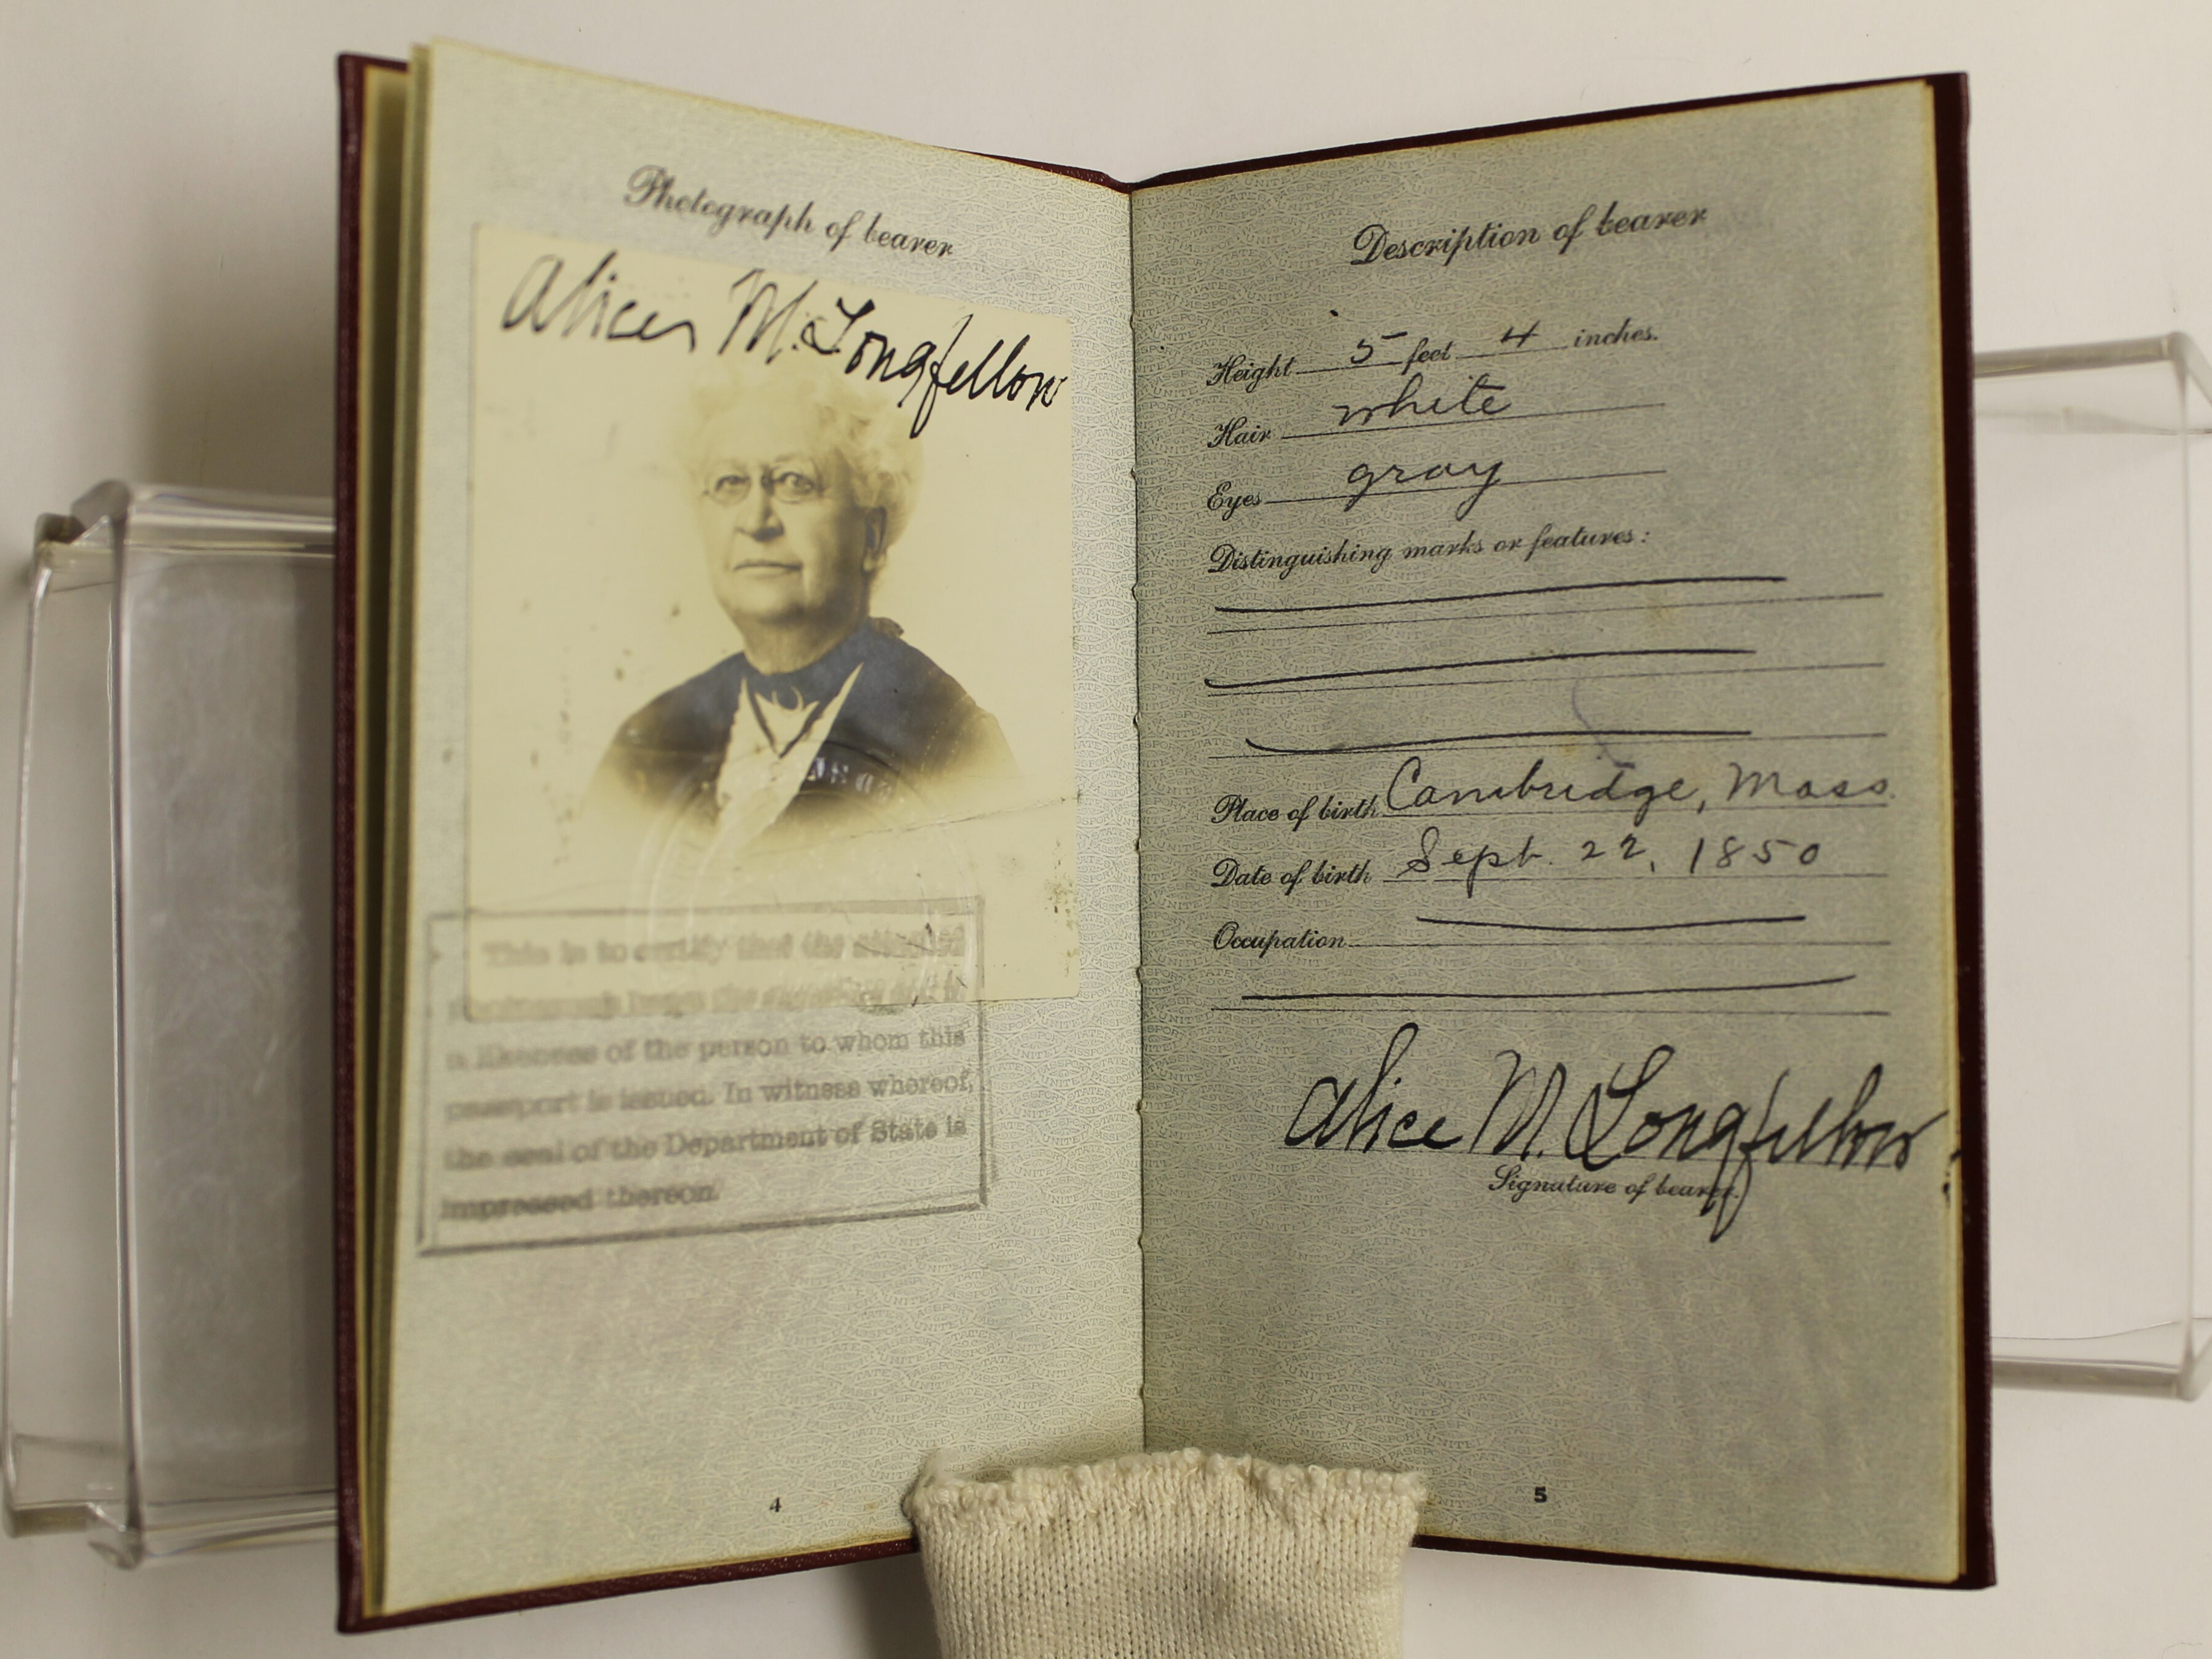 Photograph of bearer
Alice M. Longfellow
This is to certify that the attached
photograph bears the signature and is
a likeness of the person to whom this
passport is issued. In witness whereof,
the seal of the Department of State is
impressed thereon.
4
Description of bearer
Height 5 feet 4 inches.
Hair white
Eyes gray
Distinguishing marks or features:
Place of birth Cambridge, Mass.
Date of birth Sept. 22, 1850
Occupation
Alice M. Longfellow
Signature of bearer.
5